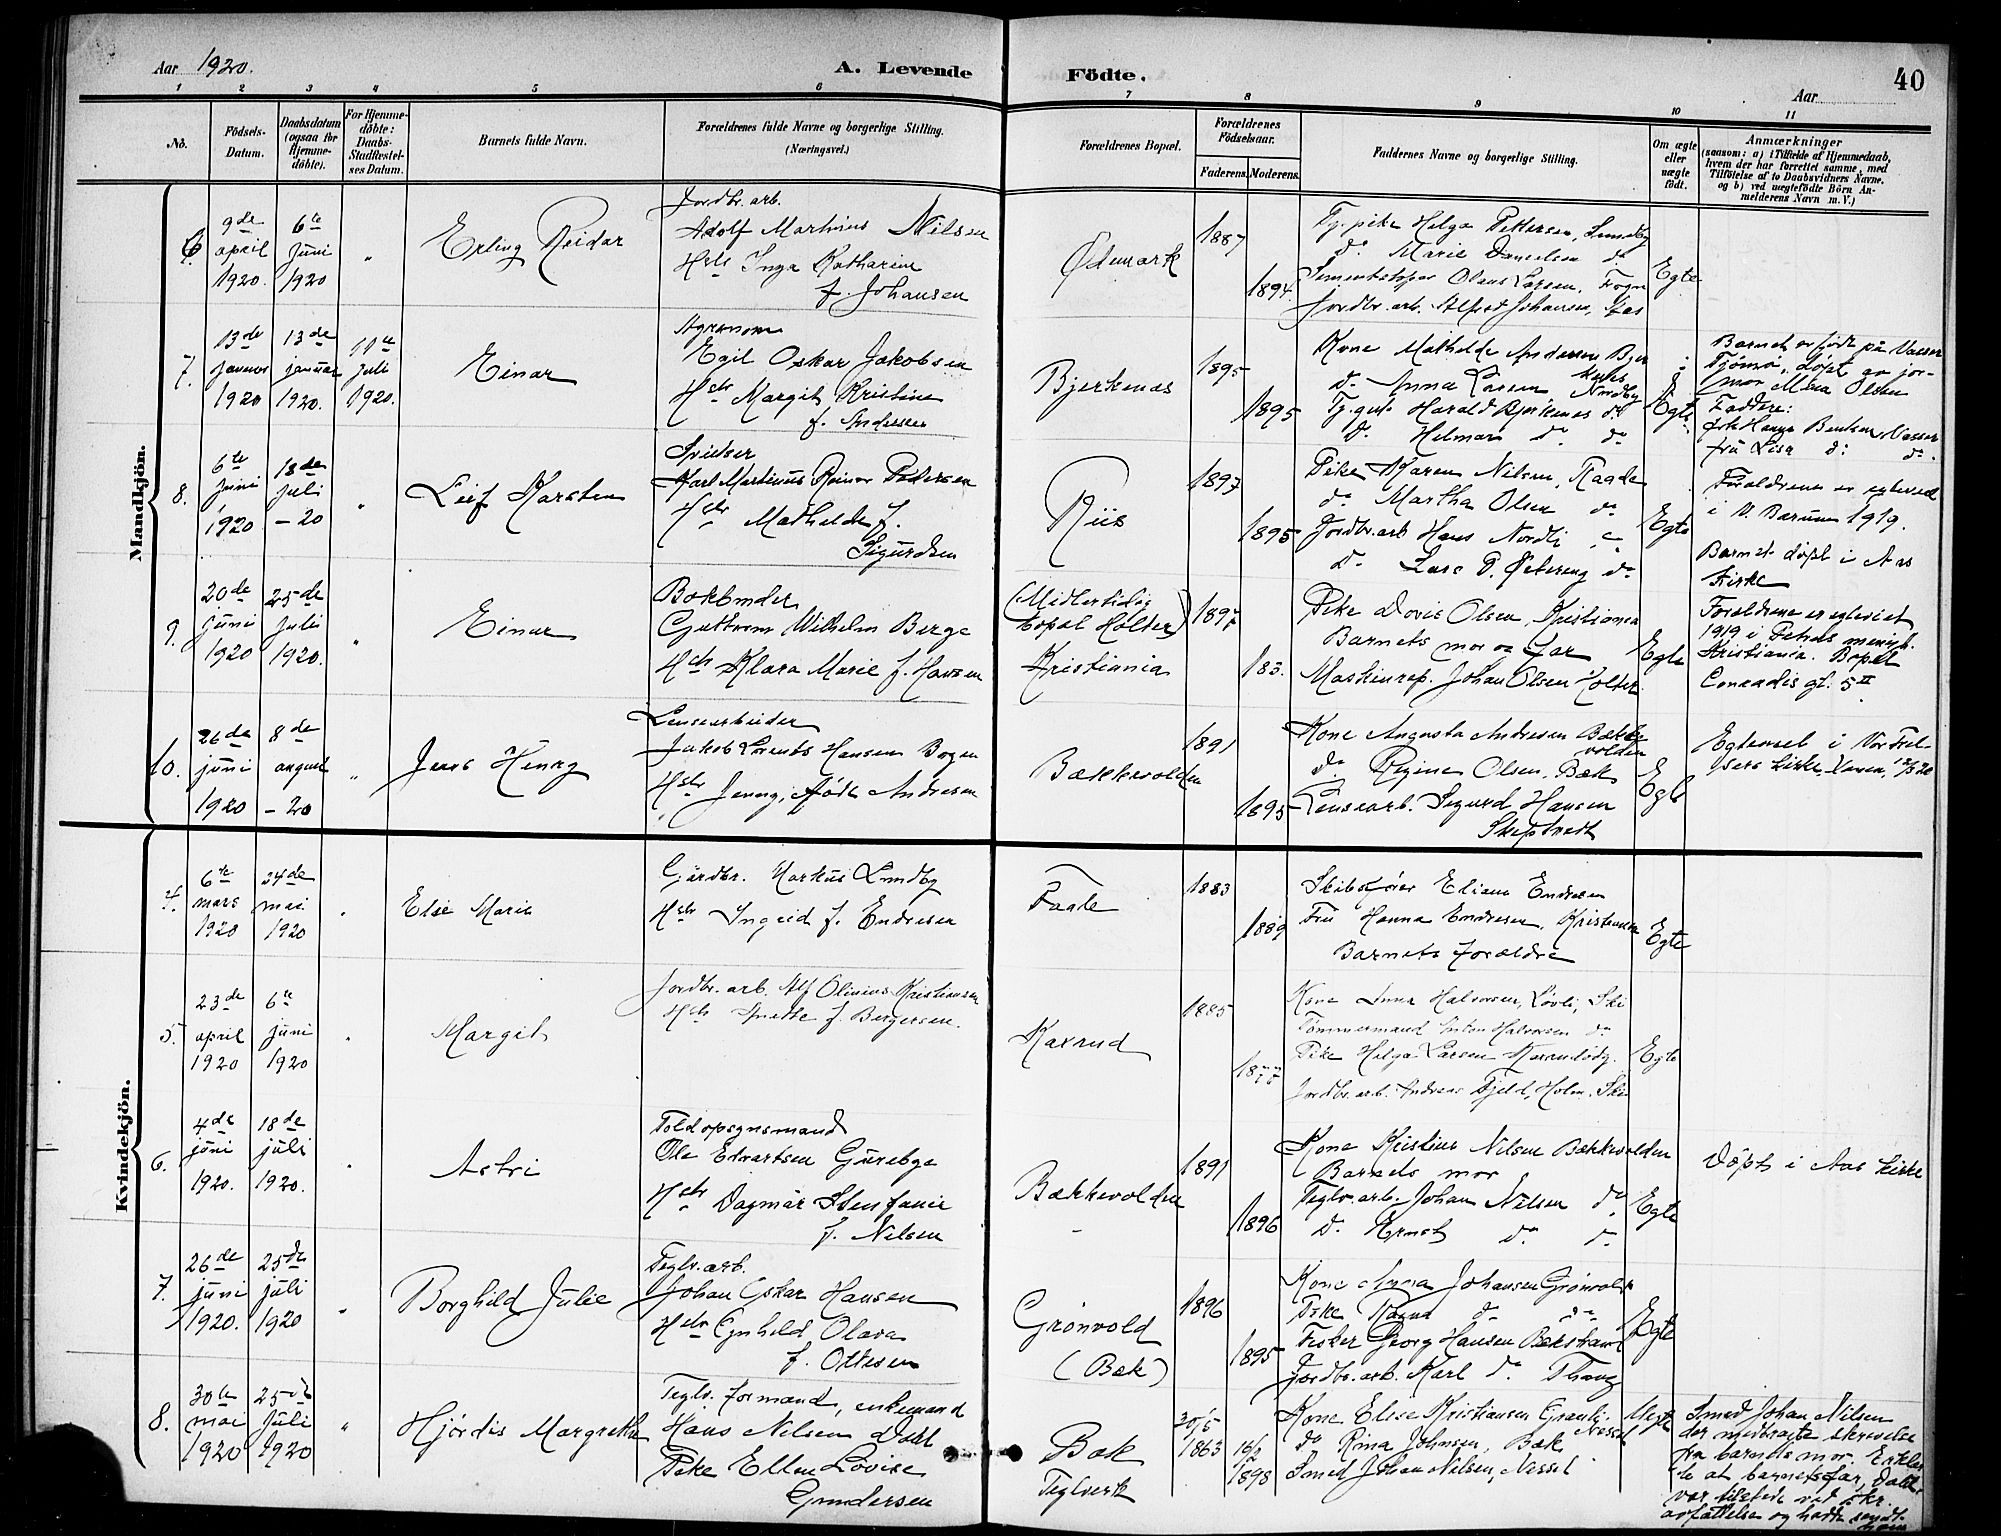 Aar 1920.
A. Levende Födte.
40
Aar
1 2 3 4 5 6 7 8 9 10 11
No.
Födsels-Datum.
Daabsdatum (ogsaa for Hjemme-döbte).
For Hjemme-döbte: Daabs-Stadfæstel-ses Datum.
Barnets fulde Navn.
Forældrenes fulde Navne og borgerlige Stilling.
(Næringsvei.)
Forældrenes Bopæl.
Forældrenes Födselsaar.
Faderens. Moderens.
Faddernes Navne og borgerlige Stilling.
Om ægte eller uægte födt.
Anmærkninger
(saasom: a) i Tilfælde af Hjemmedaab,
hvem der har forrettet samme, med
Tilföielse af to Daabsvidners Navne.
og b) ved uegtefödte Börn An-
melderens Navn m. V.)
Mandkjön.
6.
9de april 1920.
6te juni 1920
"
Erling Reidar
Jordbr. arb.
Adolf Martinus Nilsen
Hstr Inga Katharine
f. Johansen
Ødemark
1887
1894.
Tj. pike Helga Pettersen, Sundby
do Marie Danielsen do
Sementstøper Olaus Larsen, Frogn
Jordbr. arb. Alfred Johansen, Aas
Egte
7.
13de januar 1920
13de januar 1920.
11te juli 1920.
Einar
Agronom
Egil Oskar Jakobsen
Hstr Margit Kristine
f. Andersen
Bjerkenæs
1895
1895
Kone Mathilde Andersen Bjer
kenes
do Anna Larsen, Nordby
Tj. gut Harald Bjerkenes do
Do Helmar do do
Egte
Barnet er født på Vasser
Tjømø, døpt av jor-
mor Mina Olsen
Faddere:
frk Hanna Bentsen, Vasser
frü Lisa do do.
8.
6te juni 1920
18de juli – 20
"
Leif Karsten
Karl Martinus Reinor Pedersen
Hstr Mathilde f.
Sigurdsen
Riis
1897
1895
Pike Karen Nilsen, Kagde
do Martha Olsen do
Jordbr. arb Hans Nordli
Do Lars P. Østereng do
Egte
Foreldrene er egteviet
i V. Bærum 1919.
Barnet døpt i Aas
Kirke
9.
20de juni 1920
25de juli 1920.
"
Einar
Bokbinder
Guttorm Wilhelm Berge
Hstr Klara Marie f. Hansen
(Midlertidig
bopæl Holter)
Kristiania
1897
183.
Pike Dovis Olsen, Kristiania
Barnets mor og far
Maskinrep. Johan Olsen Holter.
Egte
Foreldrene er egteviet
1919 i Petrus menigh.
Kristiania. Bopæl
Conradis gt. 5 II
10.
26de juni 1920
8de august – 20
"
Jens Henry
Lensearbeider
Jakob Lorents Hansen Bogen
Hstr Jenny, født Andresen
Bækkevolden
1891
1895
Kone Augusta Andresen Bække
volden
do Regine Olsen, Bæk
Lensearb. Sigurd Hansen
Egte
Egteviet i Vor Frel-
sers kirke
Kvindekjön.
4.
6te mars 1920
24de mai 1920
"
Else Marie
Gårdbr. Markus Sundby
Hstr Ingrid f. Endresen
Faale
1883
1889
Skibsfører Elias Endresen
Fru Hanna Endresen, Kristiania
Barnets forældre
Egte
5.
23de april 1920
6te juni 1920
"
Margit
Jordbr. arb. Alf Olinius Kristiansen
Hstr Anette f. Bergersen.
Kaxrud
1885
1877
Kone Anna Halvorsen, Løvli, Ski
Tømmermand Anton Halvorsen do
Pike Helga Larsen
Jordbr. arb. Andreas Fjeld, Holm, Ski
Egte
6.
4de juni 1920.
18de juli 1920.
"
Astri
Toldopsynsmand
Ole Edvartsen Gurebye
Hstr Dagmar Stenfanie
f. Nilsen
Bækkevolden
1891
1896
Kone Kristine Nilsen Bækkevolden
Barnets mor
Teglv. arb. Johan Nilsen do
Do Ernst do do
Egte
Døpt i Aas kirke
7.
26de juni 1920.
25de juli 1920
"
Borghild Julie
Teglv. arb.
Johan Oskar Hansen
Hstr Gunhild Olava
f. Ottesen
Grønvold
(Bæk)
1896
1895
Kone Anna Johansen Grønvold
Pike Ragna do do
Fisker Georg Hansen Bækstrand
Jordbr. arb. Karl do
Egte
8.
30te mai 1920
25de juli 1920
"
Hjördis Margrethe
Teglv. formand, enkemand
Hans Nilsen Dahl
Pike Ellen Lovise
Gundersen
Bæk
Teglverk
30/5
1863
1898
Kone Elise Kristiansen Granli,
Nessel
do Rina Johnsen, Bæk
Smed Johan Nilsen, Nessel
Uegte
Smed Johan Nilsen
der medbragte skrivelse
fra barnets mor. Erklær
te at barnets far, Dahl
var tilstede ved skr.
avfattelse og hadde sendt